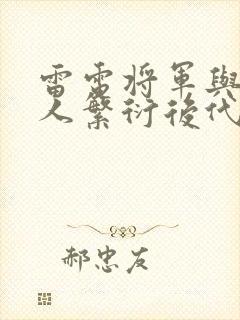 雷電将軍與
人繁衍後代
郝忠友